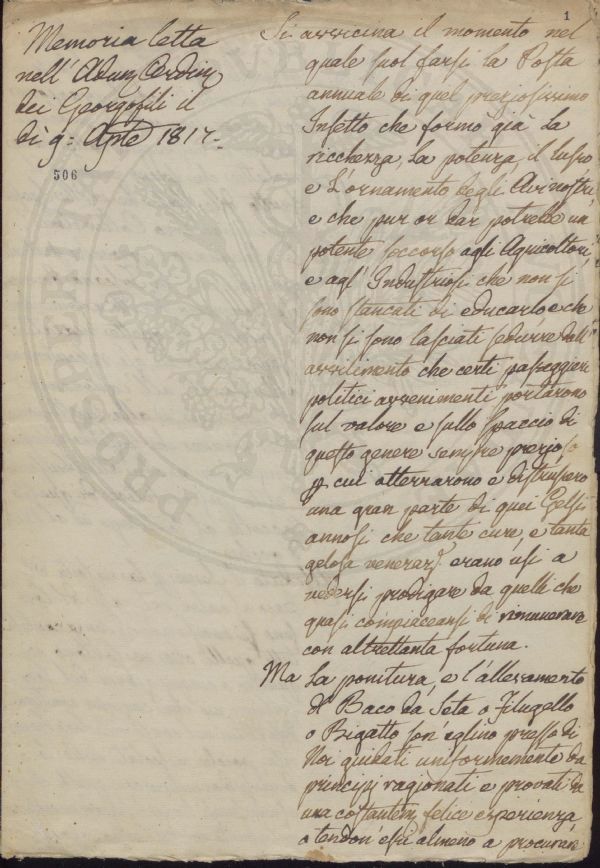 1
Memoria letta
nell' Adunz Ordinª
dei Georgofili il
dì 9= Aple 1817.
506
Si avvicina il momento nel
quale suol farsi la Posta
annuale di quel preziosissimo
Insetto che formò già la
ricchezza, la potenza, il lusso
e l'ornamento degli Avi nostri,
e che pur or dar potrebbe un
potente soccorso agli Agricoltori
e agl' Industriosi che non si
sono stancati di educarlo e che
non si sono lasciati sedurre dall'
avvilimento che certi passeggieri
politici avvenimenti portarono
sul valore e sullo spaccio di
questo genere sempre prezioso
cui atterrarono e distrussero
una gran parte di quei Gelsi
annosi che tante cure, e tanta
gelosa veneraz. erano usi a
vedersi prodigare da quelli che
quasi compiaceansi di rimunerare
con altrettanta fortuna.
Ma la ponitura, e l'allevamento
del Baco da Seta o Filugello
o Bigatto son eglino presso di
Noi guidati uniformemente da
principj ragionati e provati da
una costante, felice esperienza,
o tendon essi almeno a procurare
PROSPERITATI